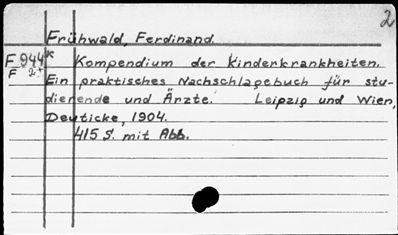 2
Frühwald, Ferdinand.
F 944 K Kompendium der Kinderkrankheiten.
F 2+ Ein praktisches Nachschlagebuch für stu-
dierende und Ärzte. Leipzig und Wien,
Deuticke, 1904.
415 S. mit Abb.